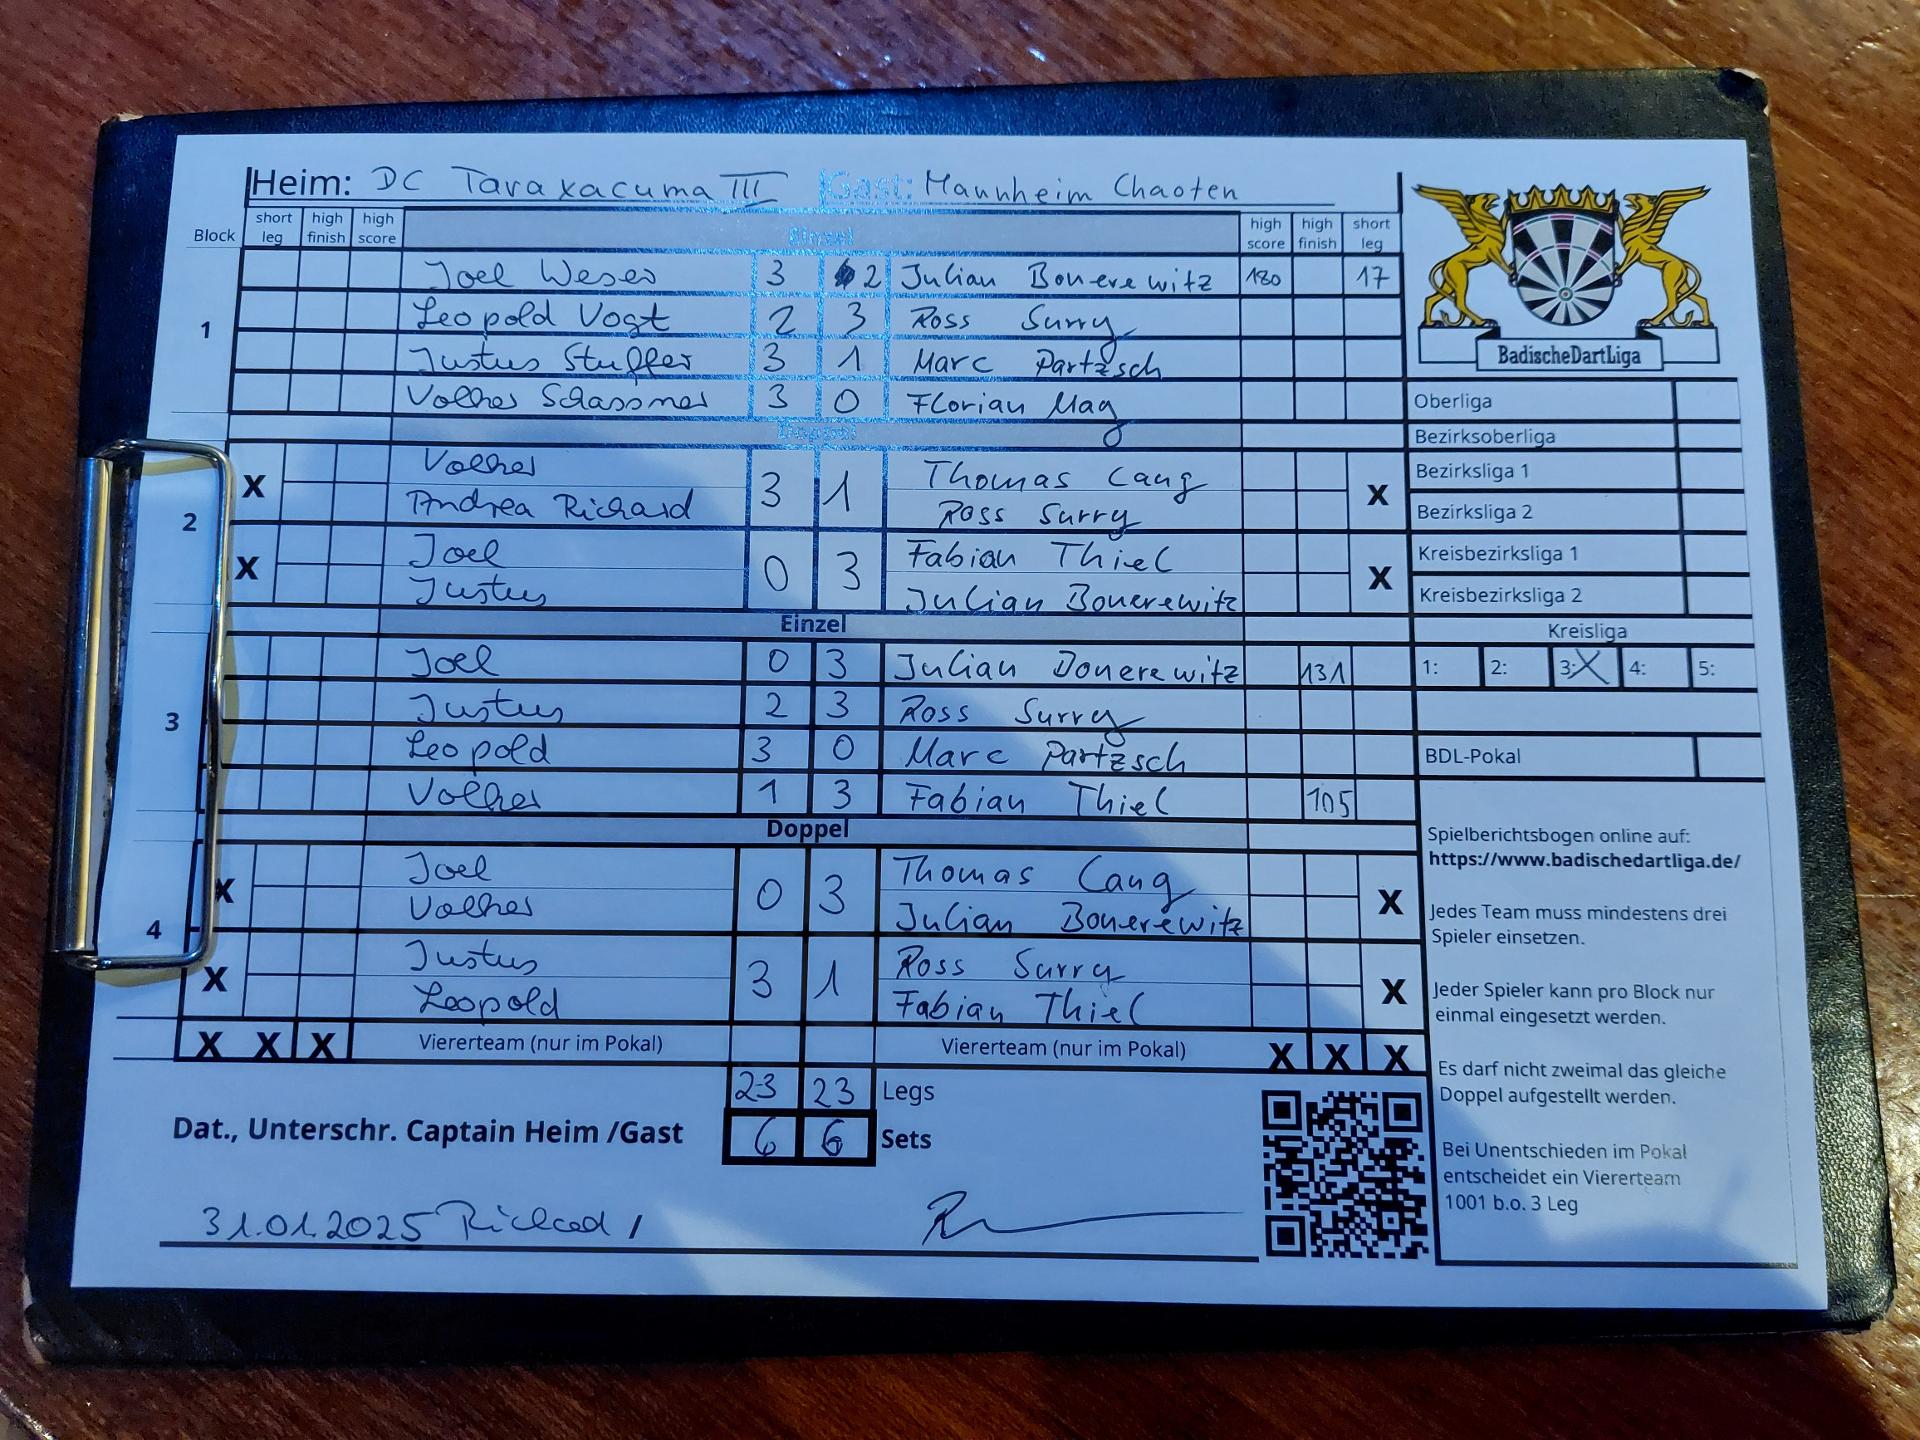 Heim: DC Taraxacuma III Gast: Mannheim Chaoten
Block short leg high finish high score Einzel high score high finish short leg
1
Joel Weser 3 2 Julian Bonerewitz 180 17
Leopold Vogt 2 3 Ross Surry
Justus Stuffer 3 1 Marc Partzsch
Volker Schassner 3 0 Florian Mag
Doppel
2
X Volker 3 1 Thomas Cang X
Andrea Richard Ross Surry
X Joel 0 3 Fabian Thiel X
Justus Julian Bonerewitz
Einzel
3
Joel 0 3 Julian Bonerewitz 131
Justus 2 3 Ross Surry
Leopold 3 0 Marc Partzsch
Volker 1 3 Fabian Thiel 105
Doppel
4
X Joel 0 3 Thomas Cang X
Volker Julian Bonerewitz
X Justus 3 1 Ross Surry X
Leopold Fabian Thiel
X X X Viererteam (nur im Pokal) Viererteam (nur im Pokal) X X X
23 23 Legs
Dat., Unterschr. Captain Heim /Gast 6 6 Sets
31.01.2025 Richard /
BadischeDartLiga
Oberliga
Bezirksoberliga
Bezirksliga 1
Bezirksliga 2
Kreisbezirksliga 1
Kreisbezirksliga 2
Kreisliga
1: 2: 3: X 4: 5:
BDL-Pokal
Spielberichtsbogen online auf:
https://www.badischedartliga.de/
Jedes Team muss mindestens drei
Spieler einsetzen.
Jeder Spieler kann pro Block nur
einmal eingesetzt werden.
Es darf nicht zweimal das gleiche
Doppel aufgestellt werden.
Bei Unentschieden im Pokal
entscheidet ein Viererteam
1001 b.o. 3 Leg